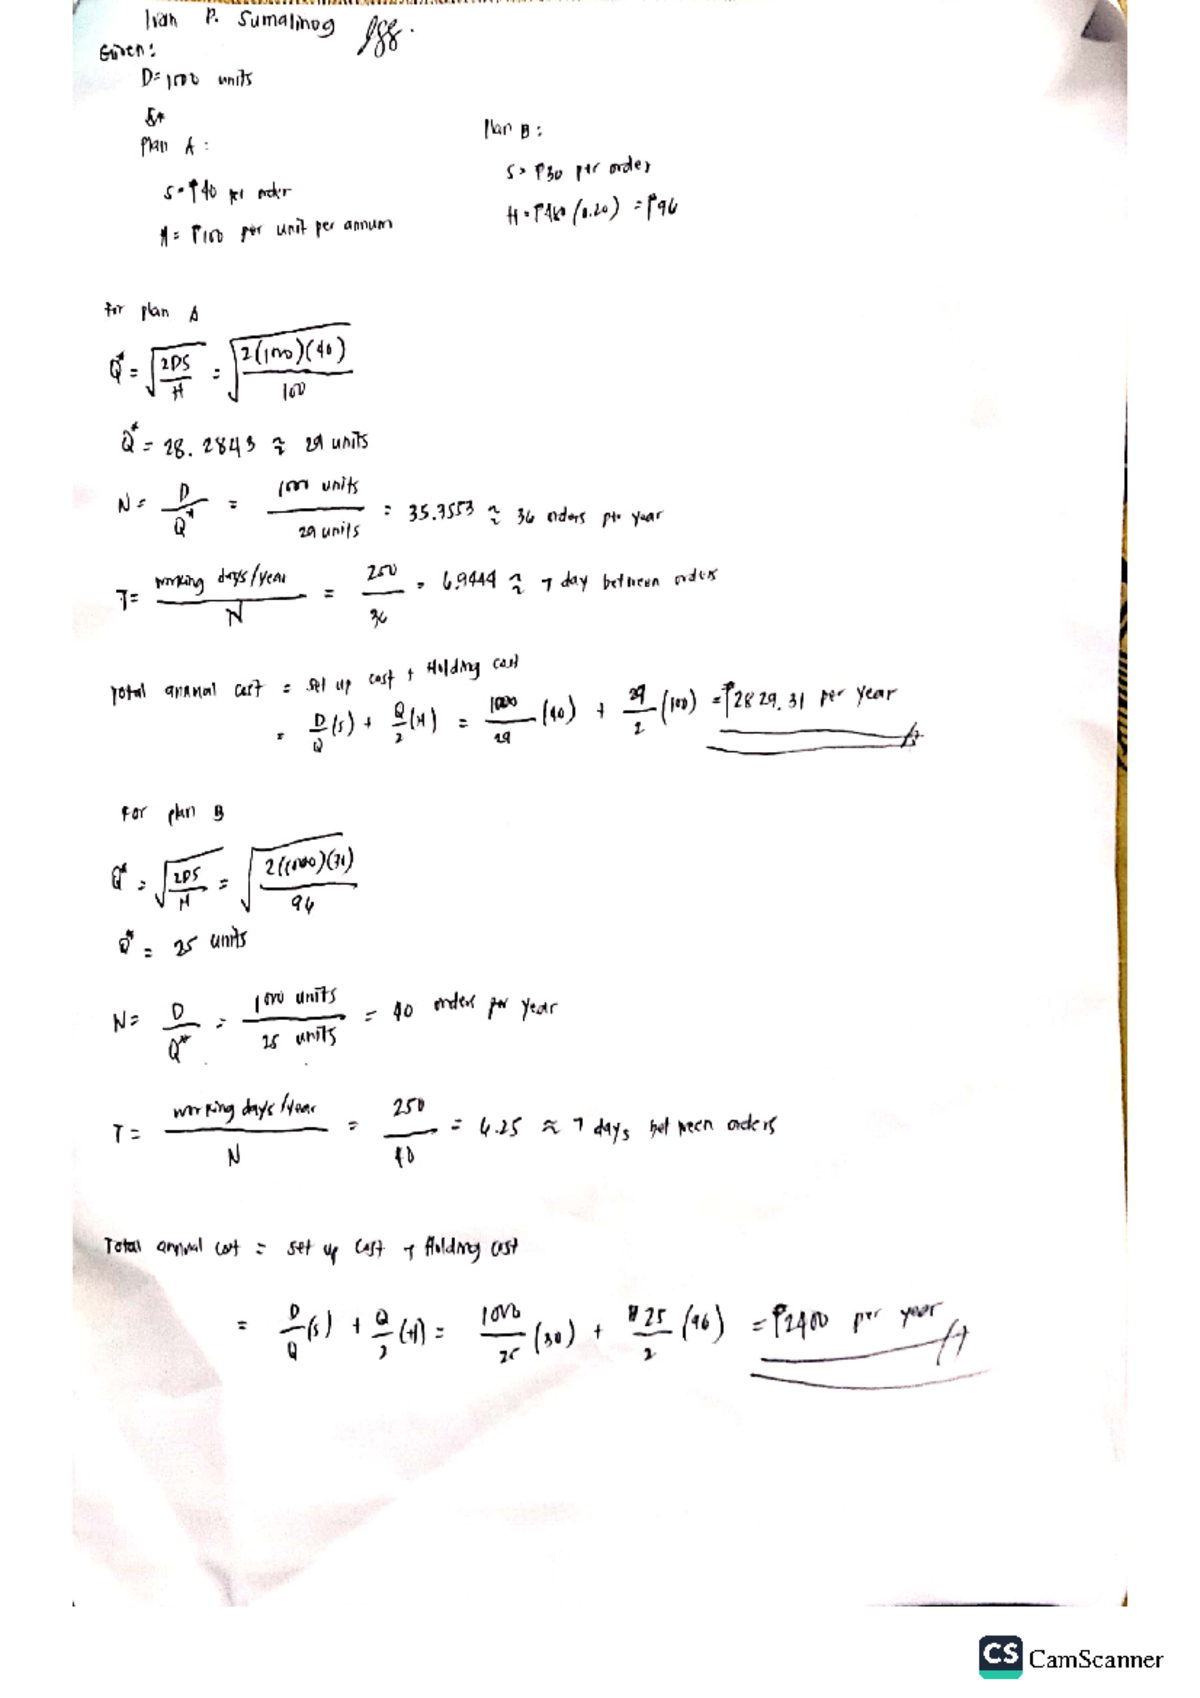 Ivan P. Sumalinog
Given:
D= 1000 units
Plan A:
S = ₱40 per order
H = ₱100 per unit per annum
Plan B:
S = ₱30 per order
H = ₱480 (0.20) = ₱96
For plan A
Q* = √(2DS/H) = √(2(1000)(40)/100)
Q* = 28.2843 ≈ 29 units
N = D/Q* = 1000 units/29 units = 35.3553 ≈ 36 orders per year
T = working days/year/N = 250/36 = 6.9444 ≈ 7 day between orders
Total annual cost = set up cost + Holding cost
= D/Q (S) + Q/2 (H) = 1000/29 (40) + 29/2 (100) = ₱2829.31 per year
For plan B
Q* = √(2DS/H) = √(2(1000)(30)/96)
Q* = 25 units
N = D/Q* = 1000 units/25 units = 40 orders per year
T = working days/year/N = 250/40 = 6.25 ≈ 7 days between orders
Total annual cost = set up cost + Holding cost
= D/Q (S) + Q/2 (H) = 1000/25 (30) + 25/2 (96) = ₱2400 per year
CS CamScanner